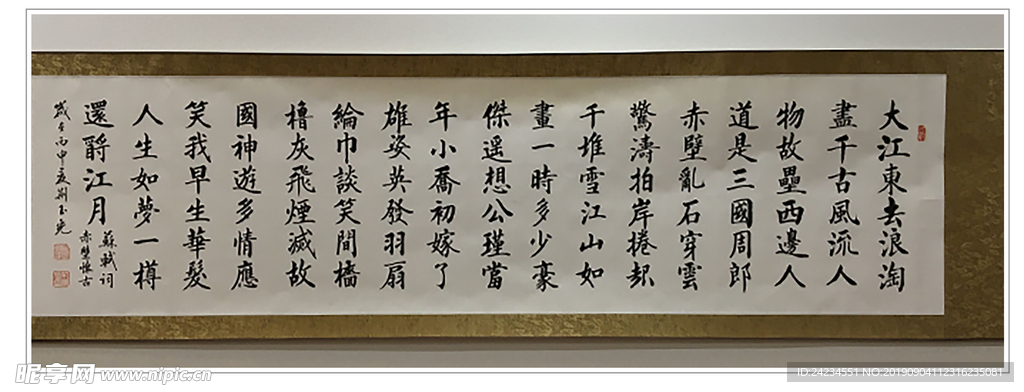 大江東去浪淘
盡千古風流人
物故壘西邊人
道是三國周郎
赤壁亂石穿雲
驚濤拍岸捲起
千堆雪江山如
畫一時多少豪
傑遥想公瑾當
年小喬初嫁了
雄姿英發羽扇
綸巾談笑間檣
櫓灰飛煙滅故
國神遊多情應
笑我早生華髮
人生如夢一樽
還酹江月
蘇軾詞
赤壁懷古
歲在丙申夏荆玉
昵享网 www.nipic.cn
ID:24234551 NO:20190904112316235081